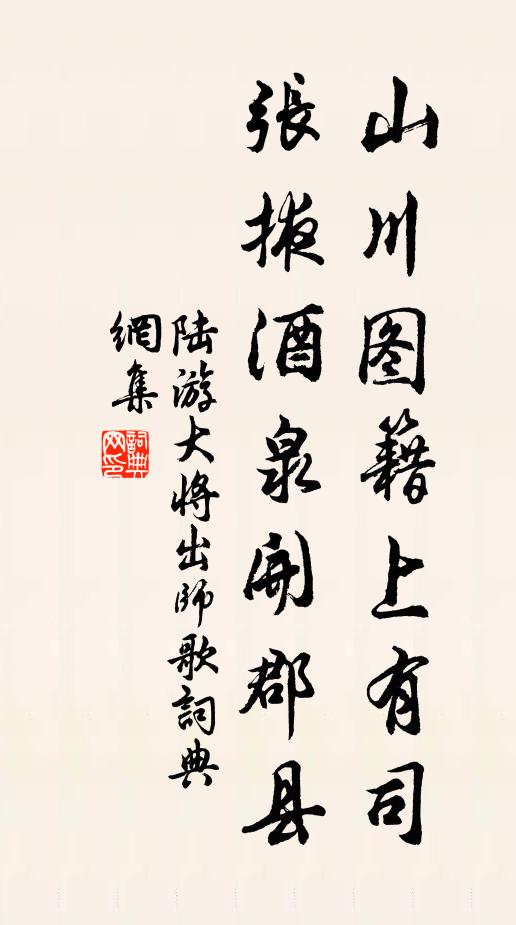 山川图籍上有司
張掖酒泉開郡县
陆游大将出师歌詞典
網集
詞典网印